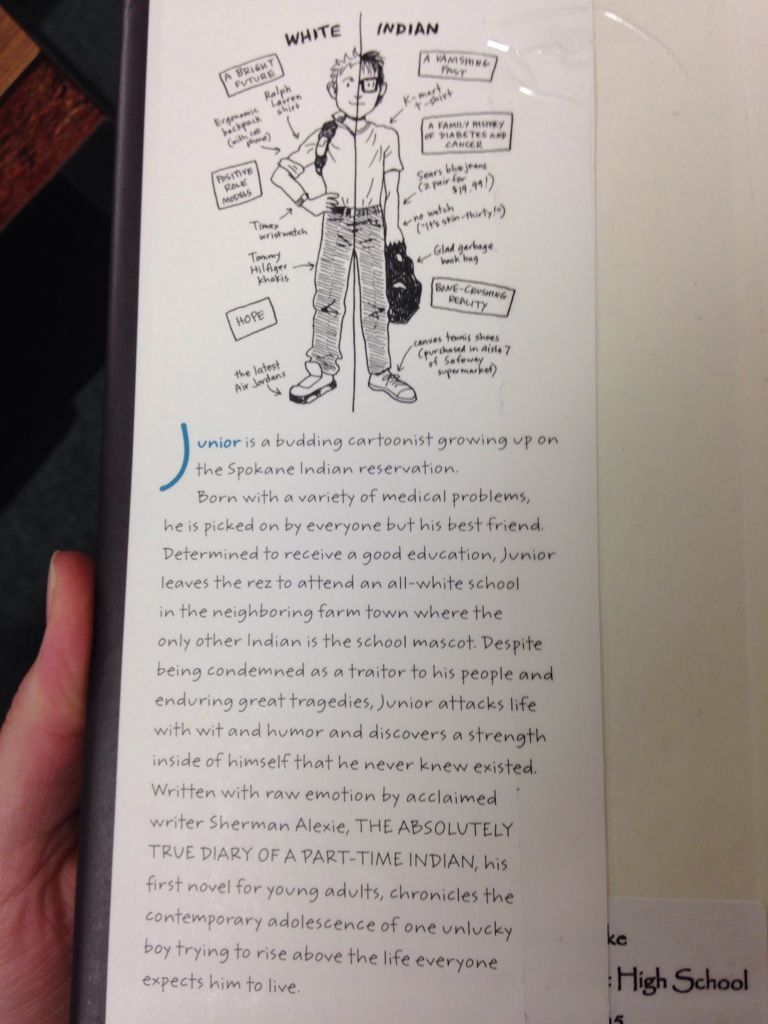 WHITE INDIAN
A BRIGHT
FUTURE
Ralph
Lauren
shirt
Ergonomic
backpack
(with cell
phone)
POSITIVE
ROLE
MODELS
Timex
wristwatch
Tommy
Hilfiger
khakis
HOPE
the latest
Air Jordans
A VANISHING
PAST
K-mart
t-shirt
A FAMILY HISTORY
OF DIABETES AND
CANCER
Sears blue jeans
(2 pair for
$19.99!)
no watch
("it's skin-thirty!")
Glad garbage
book bag
BONE-CRUSHING
REALITY
canvas tennis shoes
(purchased in aisle 7
of Safeway
supermarket)
Junior is a budding cartoonist growing up on
the Spokane Indian reservation.
Born with a variety of medical problems,
he is picked on by everyone but his best friend.
Determined to receive a good education, Junior
leaves the rez to attend an all-white school
in the neighboring farm town where the
only other Indian is the school mascot. Despite
being condemned as a traitor to his people and
enduring great tragedies, Junior attacks life
with wit and humor and discovers a strength
inside of himself that he never knew existed.
Written with raw emotion by acclaimed
writer Sherman Alexie, THE ABSOLUTELY
TRUE DIARY OF A PART-TIME INDIAN, his
first novel for young adults, chronicles the
contemporary adolescence of one unlucky
boy trying to rise above the life everyone
expects him to live.
ke
High School